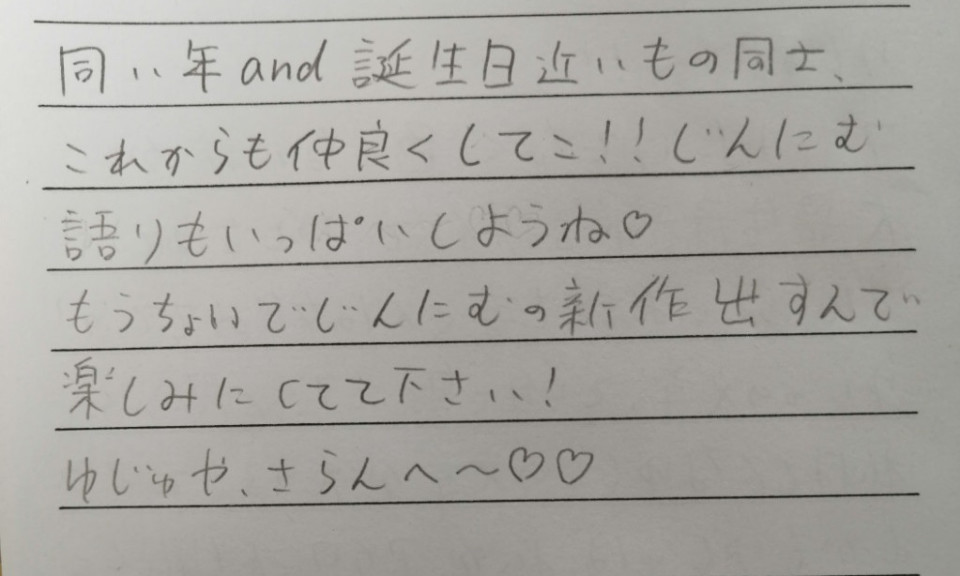 同い年and誕生日近いもの同士、
これからも仲良くしてこ!!じんにむ
語りもいっぱいしようね♡
もうちょいでじんにむの新作出すんで
楽しみにしてて下さい!
ゆじゅや、さらんへ〜♡♡